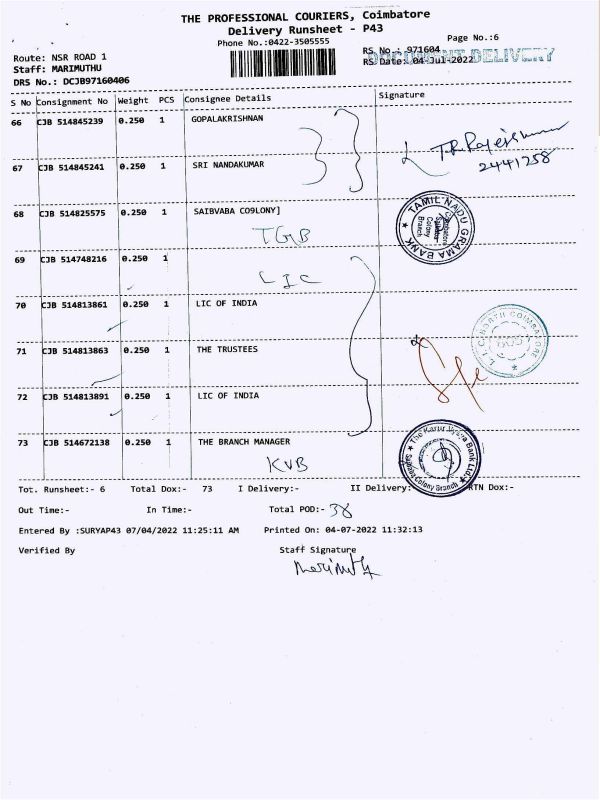 THE PROFESSIONAL COURIERS, Coimbatore
Delivery Runsheet - P43
Phone No.:0422-3505555
Page No.:6
Route: NSR ROAD 1
RS No.: 971604
Staff: MARIMUTHU
RS Date: 04-Jul-2022
DOCUMENT DELIVERY
DRS No.: DCJB97160406
S No Consignment No Weight PCS Consignee Details Signature
66 CJB 514845239 0.250 1 GOPALAKRISHNAN
67 CJB 514845241 0.250 1 SRI NANDAKUMAR
2441258
68 CJB 514825575 0.250 1 SAIBVABA CO9LONY]
TGB
TAMIL NADU GRAMA BANK
Coimbatore
Saibaba
Colony
Branch
69 CJB 514748216 0.250 1
LIC
70 CJB 514813861 0.250 1 LIC OF INDIA
71 CJB 514813863 0.250 1 THE TRUSTEES
72 CJB 514813891 0.250 1 LIC OF INDIA
73 CJB 514672138 0.250 1 THE BRANCH MANAGER
KVB
The Karur Vysya Bank Ltd.
Saibaba Colony Branch
Tot. Runsheet:- 6 Total Dox:- 73 I Delivery:- II Delivery:- RTN Dox:-
Out Time:- In Time:- Total POD:- 38
Entered By :SURYAP43 07/04/2022 11:25:11 AM Printed On: 04-07-2022 11:32:13
Verified By Staff Signature